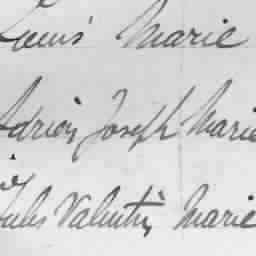 Louis Marie
Adrien Joseph Marie
Jules Valentin Marie